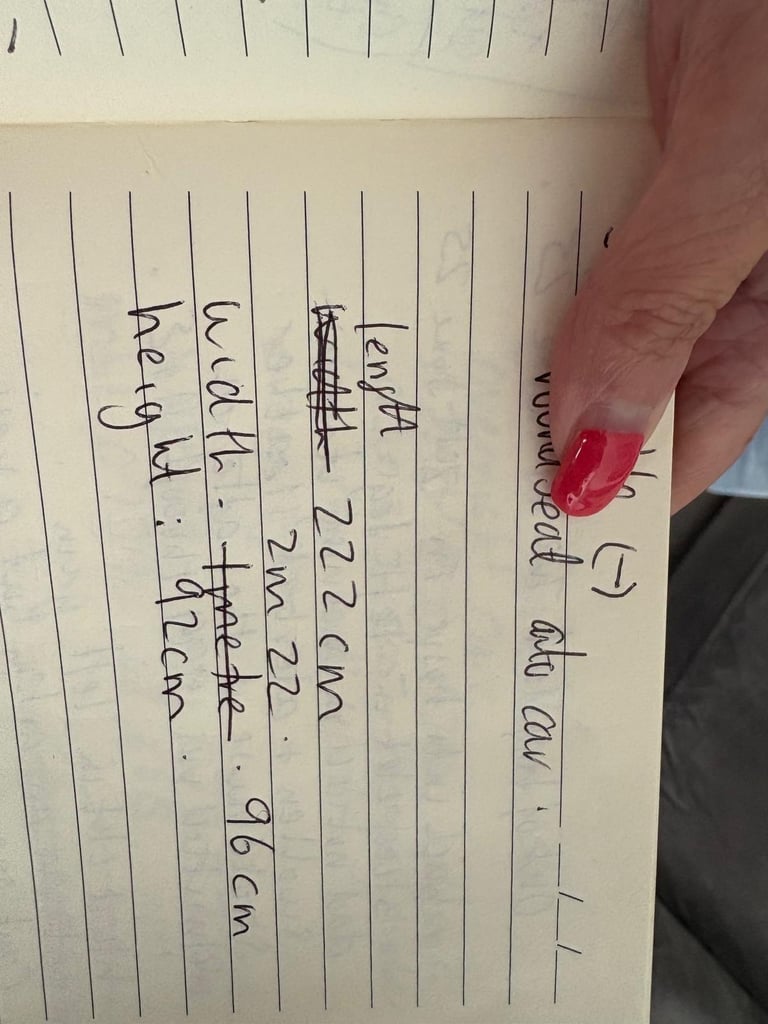 (-)
seat into car.
length
width 222cm
2m 22.
width - 1metre. 96cm
height: 92cm.